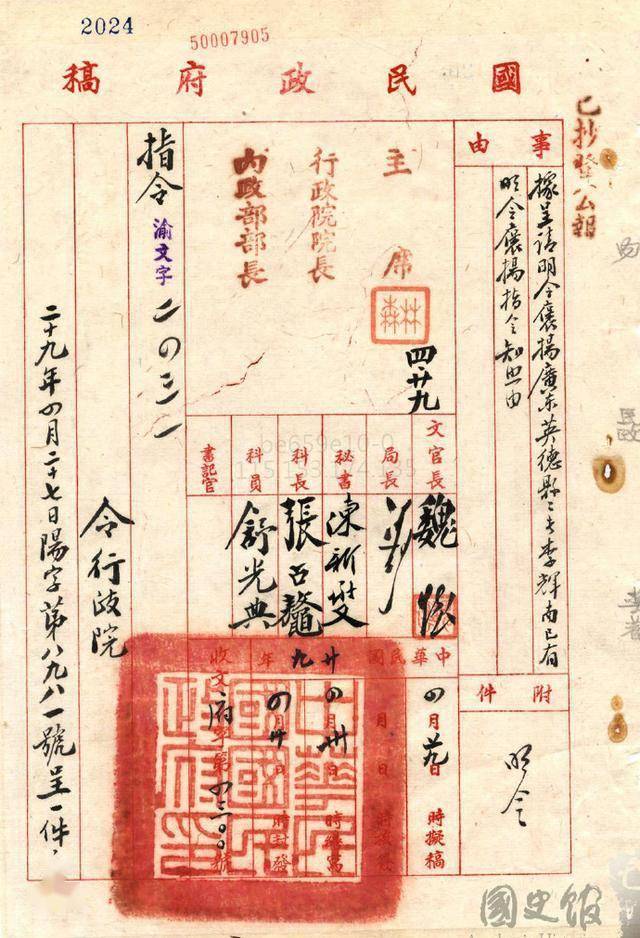 2024
50007905
國民政府稿
已抄登公報
事由
據呈請明令褒揚廣東英德縣縣長李輝南已有
明令褒揚指令知照由
附件
明令
主席
林森
四廿九
行政院院長
內政部部長
文官長 魏懷
局長
秘書
科長
科員 舒光典
書記官
中華民國廿九年
四月廿九日 時擬稿
月 日 時
四月卅日 時繕寫
四月卅日 時封發
收文府字第 號
中華民國國民政府印
指令 渝文字二〇三一
令行政院
二十九年四月二十七日陽字第八九八一號呈一件，
be659e10-0
國史館